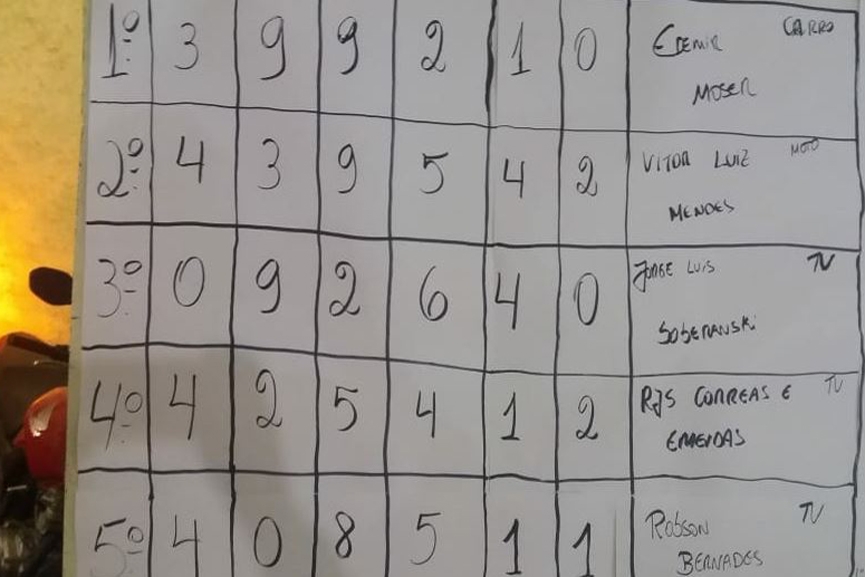 1º 3 9 9 2 1 0 EDEMIR CARRO
MOSER
2º 4 3 9 5 4 2 VITOR LUIZ MOTO
MENDES
3º 0 9 2 6 4 0 JORGE LUIS TV
SOBERANSKI
4º 4 2 5 4 1 2 RJS CORREAS E TV
EMENDAS
5º 4 0 8 5 1 1 ROBSON TV
BERNADES